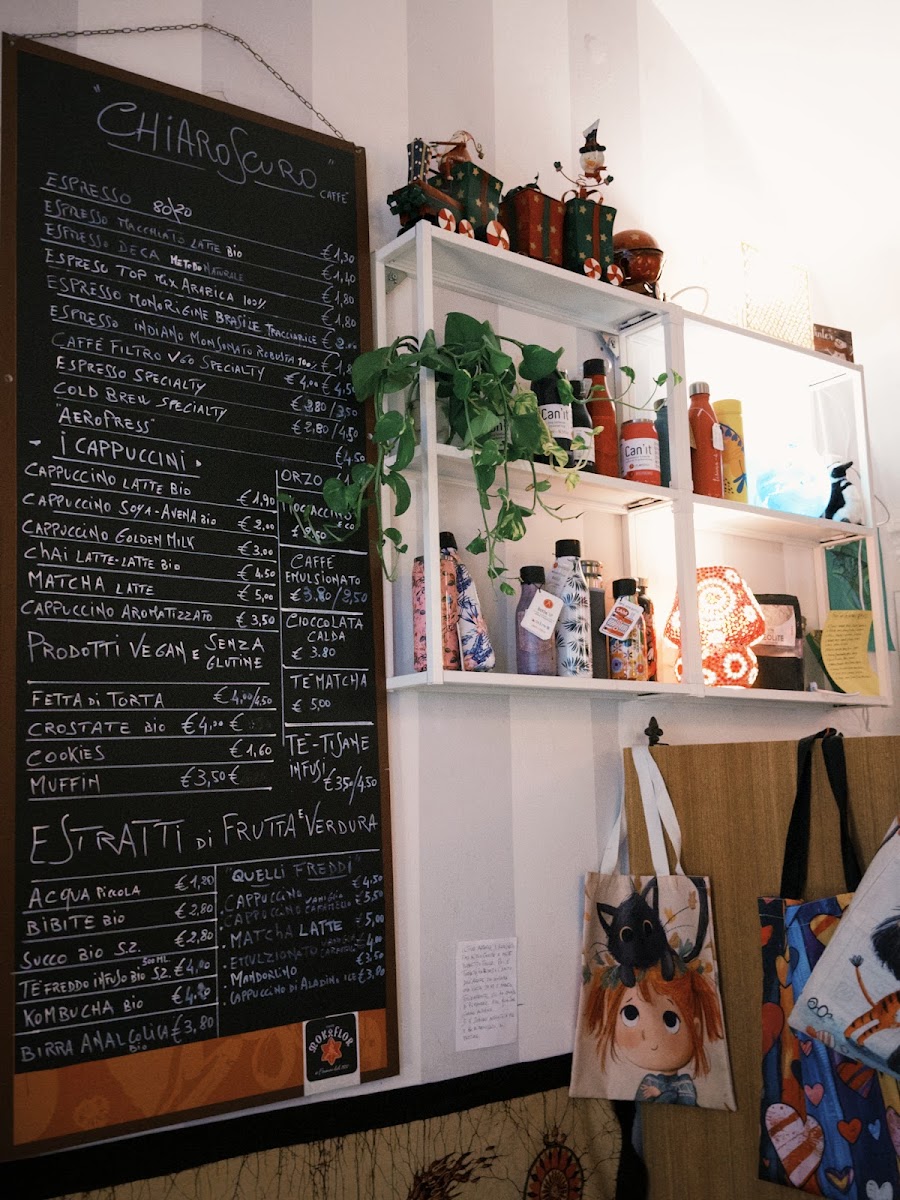 "CHIAROSCURO"
CAFFÈ
ESPRESSO 80/20 €1,30
ESPRESSO MACCHIATO LATTE BIO €1,40
ESPRESSO DECA METODO NATURALE €1,80
ESPRESO TOP MIX ARABICA 100% €1,80
ESPRESSO MONORIGINE BRASILE TRACCIABILE €2,00
ESPRESSO INDIANO MONSONATO ROBUSTA 100%
CAFFÈ FILTRO V60 SPECIALTY €4,00
ESPRESSO SPECIALTY €2,80/3,50
COLD BREW SPECIALTY €2,80/4,50
"AEROPRESS" €4,50
- I CAPPUCCINI -
CAPPUCCINO LATTE BIO €1,90
CAPPUCCINO SOYA-AVENA BIO €2,00
CAPPUCCINO GOLDEN MILK €3,00
CHAI LATTE-LATTE BIO €4.50
MATCHA LATTE €5,00
CAPPUCCINO AROMATIZZATO €3,50
ORZO
CAFFÈ
EMULSIONATO
€3.80/2,50
CIOCCOLATA
CALDA
€3.80
TE MATCHA
€5,00
TE-TISANE
INFUSI
€350/4.50
PRODOTTI VEGAN E SENZA
GLUTINE
FETTA DI TORTA €4,00/4,50
CROSTATE BIO €4,00 €
COOKIES €1,60
MUFFIN €3,50€
ESTRATTI DI FRUTTA E VERDURA
ACQUA PICCOLA €1,20
BIBITE BIO €2,80
SUCCO BIO S.Z. €2,80
TÈ FREDDO INFUSO BIO S.Z. 500ML €4,00
KOMBUCHA BIO
BIRRA ANALCOLICA BIO €3,80
"QUELLI FREDDI"
CAPPUCCINO €4.50
CAPPUCCINO CARAMELLO €5,50
. MATCHA LATTE €5,00
. EMULZIONATO €4,00
. MANDORLINO €3,50
. CAPPUCCINO DI ALADINO ICE €3,00
MOKAFLOR
Can'it
Can'it